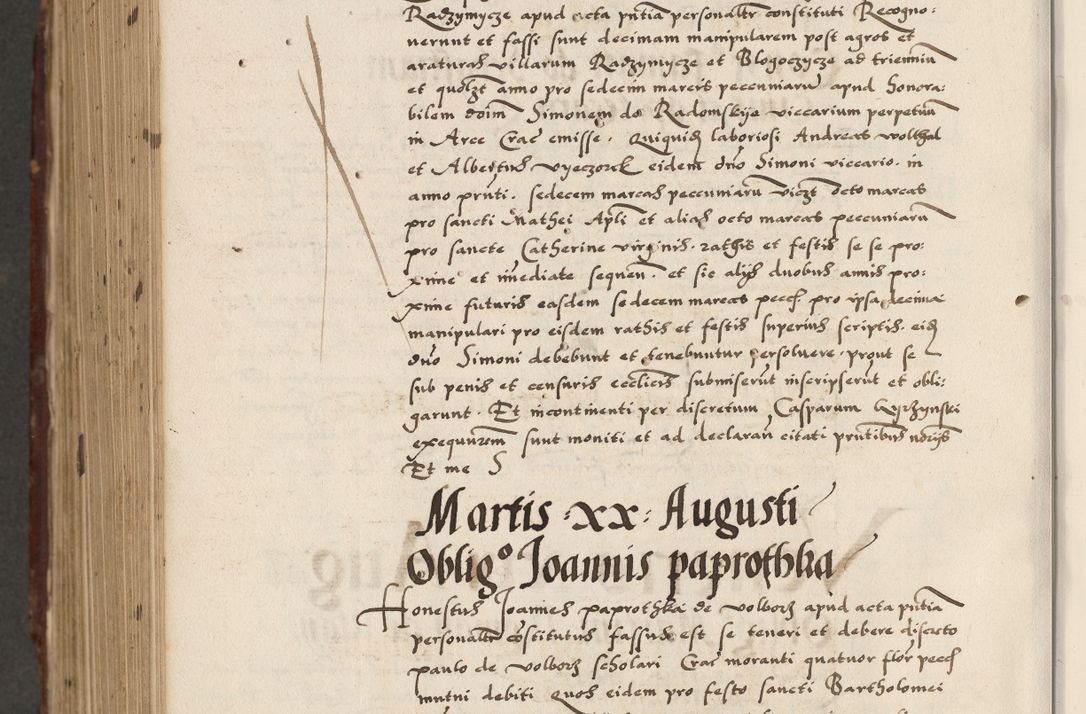 Radzymycze apud acta pñtia personalr̃ constituti Recogno:
verunt et fassi sunt decimam manipularem post agros et
araturas villarum Radzymycze et Blogoczycze ad trienniũ
et quolꝫt anno pro sedecim marcis peccuniarũ apud honora:
bilem doĩm Simonem de Radomskije viccarium perpetuũ
in Arce Crac̃ emisse. Quiquid laboriosi Andreas wolhgal
et Albertus vyeczorek eidem dño Simoni viccario. in
anno pr̃nti. sedecem marcas peccuniarũ viczt octo marcas
pro sancti Mathei Apli et alias octo marcas peccuniarũ
pro sancte Catherine virginis. rathis et festis se se pro:
xime et im̃ediate sequeñ. et sic alijs duobus annis pro:
xime futuris easdem sedecem marcas pecc̃ pro ipsa decima
manipulari pro eisdem rathis et festis superius scriptis. eid
dño Simoni debebunt et tenebuntur persolvere. prout se
sub penis et censuris eccl̃icis submiserũt inscripserũt et obli:
garunt. Et incontinenti per discretum Casparum
exequurem̃ sunt moniti et ad declarañ citati pr̃ntibus
Et me S
Martis .xx. Augusti
Oblig.º Joannis paprothka
Honestus Joannes paprothka de volborz apud acta pñtia
personalr̃ cõstitutus fassus est se teneri et debere discreto
paulo de volborz scholari Crac̃ moranti quatuor flor̃ pecc̃
mutui debiti quos eidem pro festo sancti Bartholomei